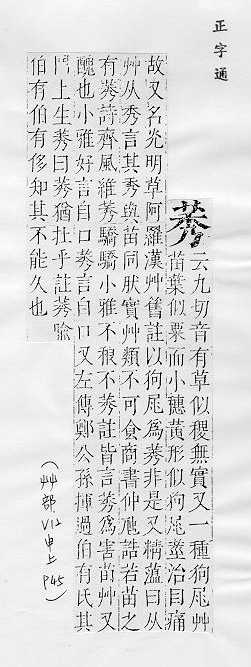 正字通
莠云九切音有草似稷無實又一種狗尾艸
苗葉似粟而小穗黃形似狗尾莖治目痛
故又名光明草阿羅漢艸舊註以狗尾爲莠非是又精薀曰从
艸从秀言其秀與苗同狀實艸類不可食商書仲虺誥若苗之
有莠詩齊風維莠驕驕小雅不稂不莠註皆言莠爲害苗艸又
醜也小雅好言自口莠言自口又左傳鄭公孫揮過伯有氏其
門上生莠曰莠猶扗乎註莠喻
伯有伯有侈知其不能久也
（艸部 V12 申上 P45）